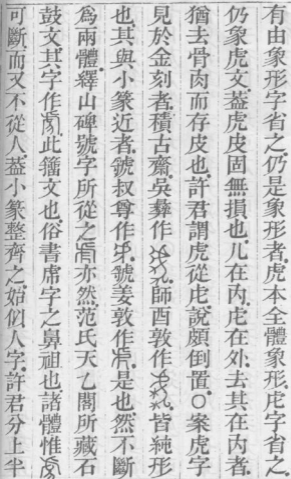 有由象形字省之。仍是象形者。虎本全體象形。虍字省之。
仍象虎文。葢虎皮固無損也。儿在內。虍在外。去其在內者。
猶去骨肉而存皮也。許君謂虎從虍。說頗倒置。○案虎字
見於金刻者。積古齋。吳彝作 師酉敦作 皆純形
也。其與小篆近者。虢叔尊作 虢姜敦作 是也。然不斷
爲兩體。繹山碑號字所從之 亦然。范氏天乙閣所藏石
鼓文。其字作 此籀文也。俗書 字之鼻祖也。諸體惟
可斷。而又不從人。葢小篆整齊之。始似人字。許君分上半